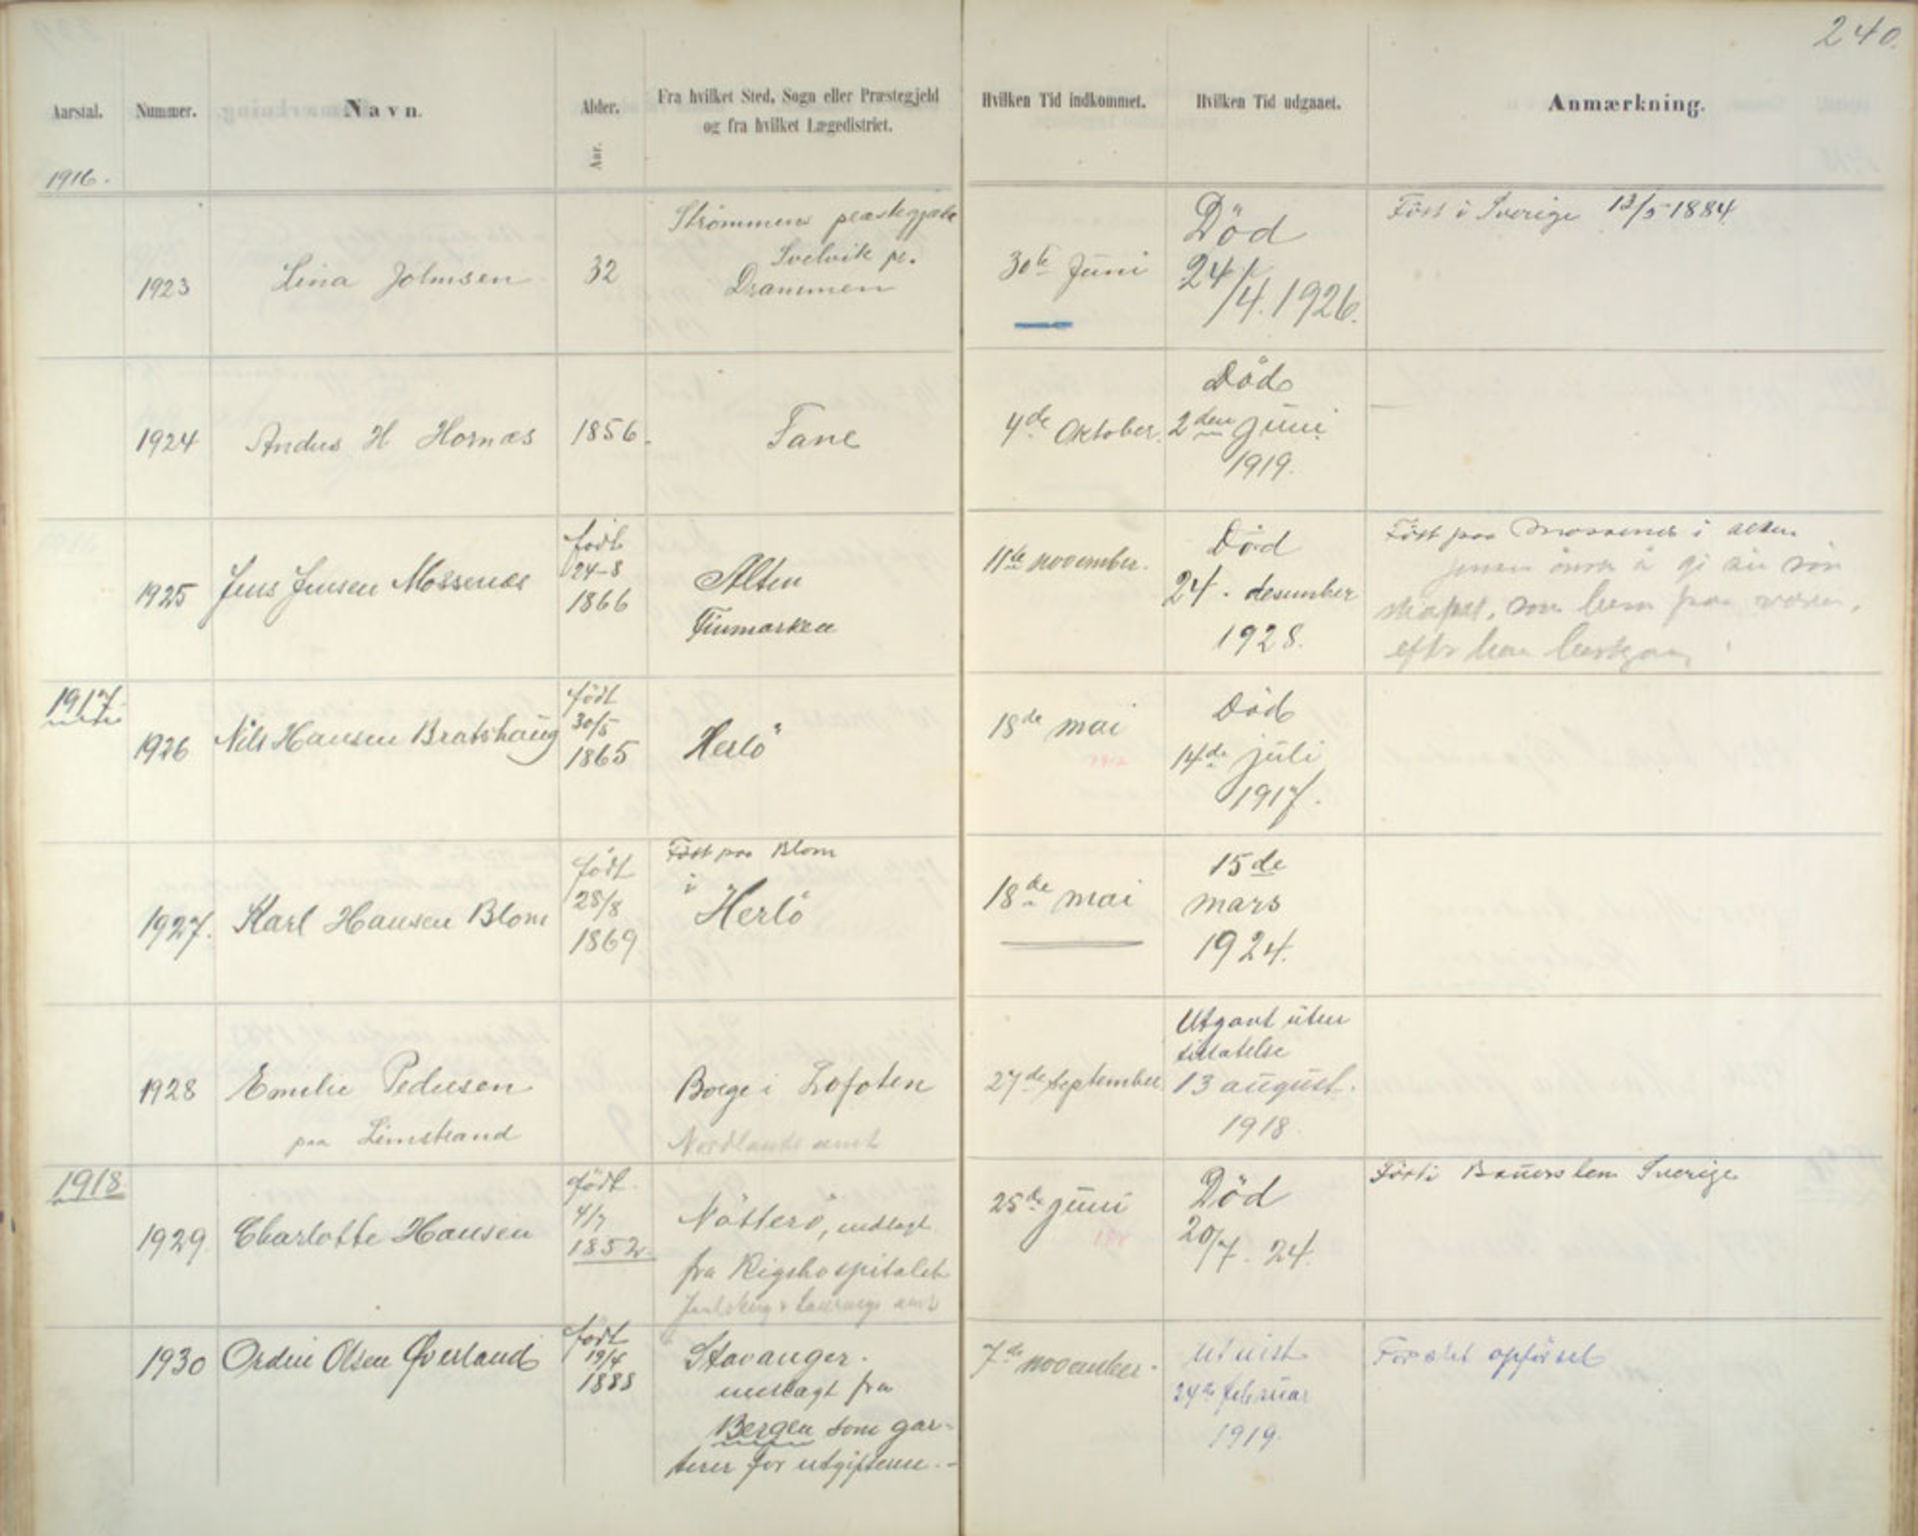 240.
Aarstal. Nummer. Navn. Alder. Fra hvilket Sted, Sogn eller Præstegjeld Hvilken Tid indkommet. Hvilken Tid udgaaet. Anmærkning.
og fra hvilket Lægedistrict.
Aar.
1916.
1923 Lina Johnsen 32
Strömmens præstegjæld
Svelvik pr.
Drammen
30te Juni
Död
24/4. 1926.
Föst i Sverige 13/5 1884
1924 Andus H Hornæs 1856. Tane
4de Oktober.
Död
2den juni
1919.
1925 Jens Jensen Mossenæs
födt
24-8
1866
Alten
Finmarken
11te november.
Död
24. desember
1928.
Föst paa Mossenes i Alten
1917
1926 Nils Hansen Bratshaug
födt
30/5
1865
Herlö
18de mai
Död
14de juli
1917.
1927. Karl Hansen Blom
födt
28/8
1869
Föst paa Blom
i
Herlö
18de mai
15de
mars
1924.
1928 Emilie Pedersen
paa Limstrand
Borge i Lofoten
Nordlands amt
27de september
Utgaat uten
tillatelse
13 august.
1918.
1918
1929 Charlotte Hansen
födt
4/7
1852
Nötterö, indlagt
fra Rigshospitalet
25de juni
Död
20/7. 24.
Föst i Sverige
1930 Ordin Olsen Øverland
födt
19/4
1888
Stavanger.
innlagt fra
Bergen som gar-
terer for utgiftene.-
7de november.
Utvist
24de februar
1919.
For slet opförsel